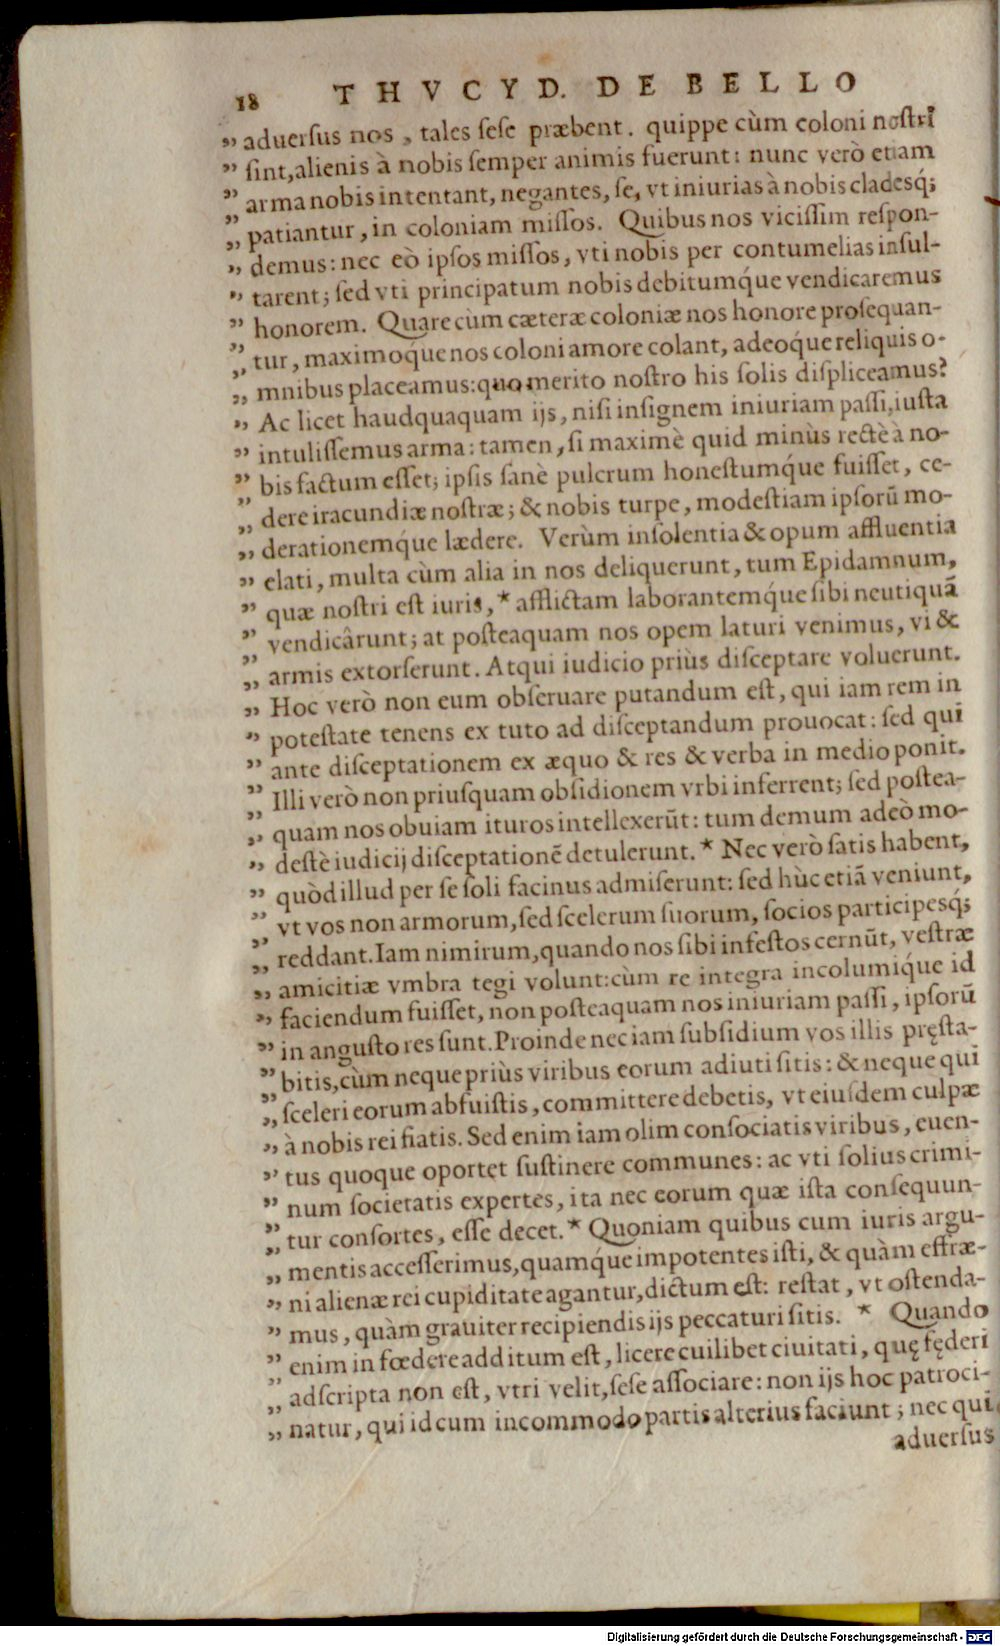 18 THVCYD. DE BELLO
„ aduerſus nos, tales ſeſe præbent. quippe cùm coloni noſtri
„ ſint, alienis à nobis ſemper animis fuerunt: nunc verò etiam
„ arma nobis intentant, negantes, ſe, vt iniurias à nobis cladesq́;
„ patiantur, in coloniam miſſos. Quibus nos viciſſim reſpon-
„ demus: nec eò ipſos miſſos, vti nobis per contumelias inſul-
„ tarent; ſed vti principatum nobis debitumq́ue vendicaremus
„ honorem. Quare cùm cæteræ coloniæ nos honore proſequan-
„ tur, maximoq́ue nos coloni amore colant, adeoq́ue reliquis o-
„ mnibus placeamus: quo merito noſtro his ſolis diſpliceamus?
„ Ac licet haudquaquam ijs, niſi inſignem iniuriam paſſi, iuſta
„ intuliſſemus arma: tamen, ſi maximè quid minùs rectè à no-
„ bis factum eſſet; ipſis ſanè pulcrum honeſtumq́ue fuiſſet, ce-
„ dere iracundiæ noſtræ; & nobis turpe, modeſtiam ipſorũ mo-
„ derationemq́ue lædere. Verùm inſolentia & opum affluentia
„ elati, multa cùm alia in nos deliquerunt, tum Epidamnum,
„ quæ noſtri eſt iuris, * afflictam laborantemq́ue ſibi neutiquã
„ vendicârunt; at poſteaquam nos opem laturi venimus, vi &
„ armis extorſerunt. Atqui iudicio priùs diſceptare voluerunt.
„ Hoc verò non eum obſeruare putandum eſt, qui iam rem in
„ poteſtate tenens ex tuto ad diſceptandum prouocat: ſed qui
„ ante diſceptationem ex æquo & res & verba in medio ponit.
„ Illi verò non priuſquam obſidionem vrbi inferrent; ſed poſtea-
„ quam nos obuiam ituros intellexerũt: tum demum adeò mo-
„ deſtè iudicij diſceptationẽ detulerunt. * Nec verò ſatis habent,
„ quòd illud per ſe ſoli facinus admiſerunt: ſed hùc etiã veniunt,
„ vt vos non armorum, ſed ſcelerum ſuorum, ſocios participesq́;
„ reddant. Iam nimirum, quando nos ſibi infeſtos cernũt, veſtræ
„ amicitiæ vmbra tegi volunt: cùm re integra incolumiq́ue id
„ faciendum fuiſſet, non poſteaquam nos iniuriam paſſi, ipſorũ
„ in anguſto res ſunt. Proinde nec iam ſubſidium vos illis pręſta-
„ bitis, cùm neque priùs viribus eorum adiuti ſitis: & neque qui
„ ſceleri eorum abfuiſtis, committere debetis, vt eiuſdem culpæ
„ à nobis rei fiatis. Sed enim iam olim conſociatis viribus, euen-
„ tus quoque oportet ſuſtinere communes: ac vti ſolius crimi-
„ num ſocietatis expertes, ita nec eorum quæ iſta conſequun-
„ tur conſortes, eſſe decet. * Quoniam quibus cum iuris argu-
„ mentis acceſſerimus, quamq́ue impotentes iſti, & quàm effræ-
„ ni alienæ rei cupiditate agantur, dictum eſt: reſtat, vt oſtenda-
„ mus, quàm grauiter recipiendis ijs peccaturi ſitis. * Quando
„ enim in fœdere additum eſt, licere cuilibet ciuitati, quę fęderi
„ adſcripta non eſt, vtri velit, ſeſe aſſociare: non ijs hoc patroci-
„ natur, qui id cum incommodo partis alterius faciunt; nec qui
aduerſus
Digitalisierung gefördert durch die Deutsche Forschungsgemeinschaft - DFG